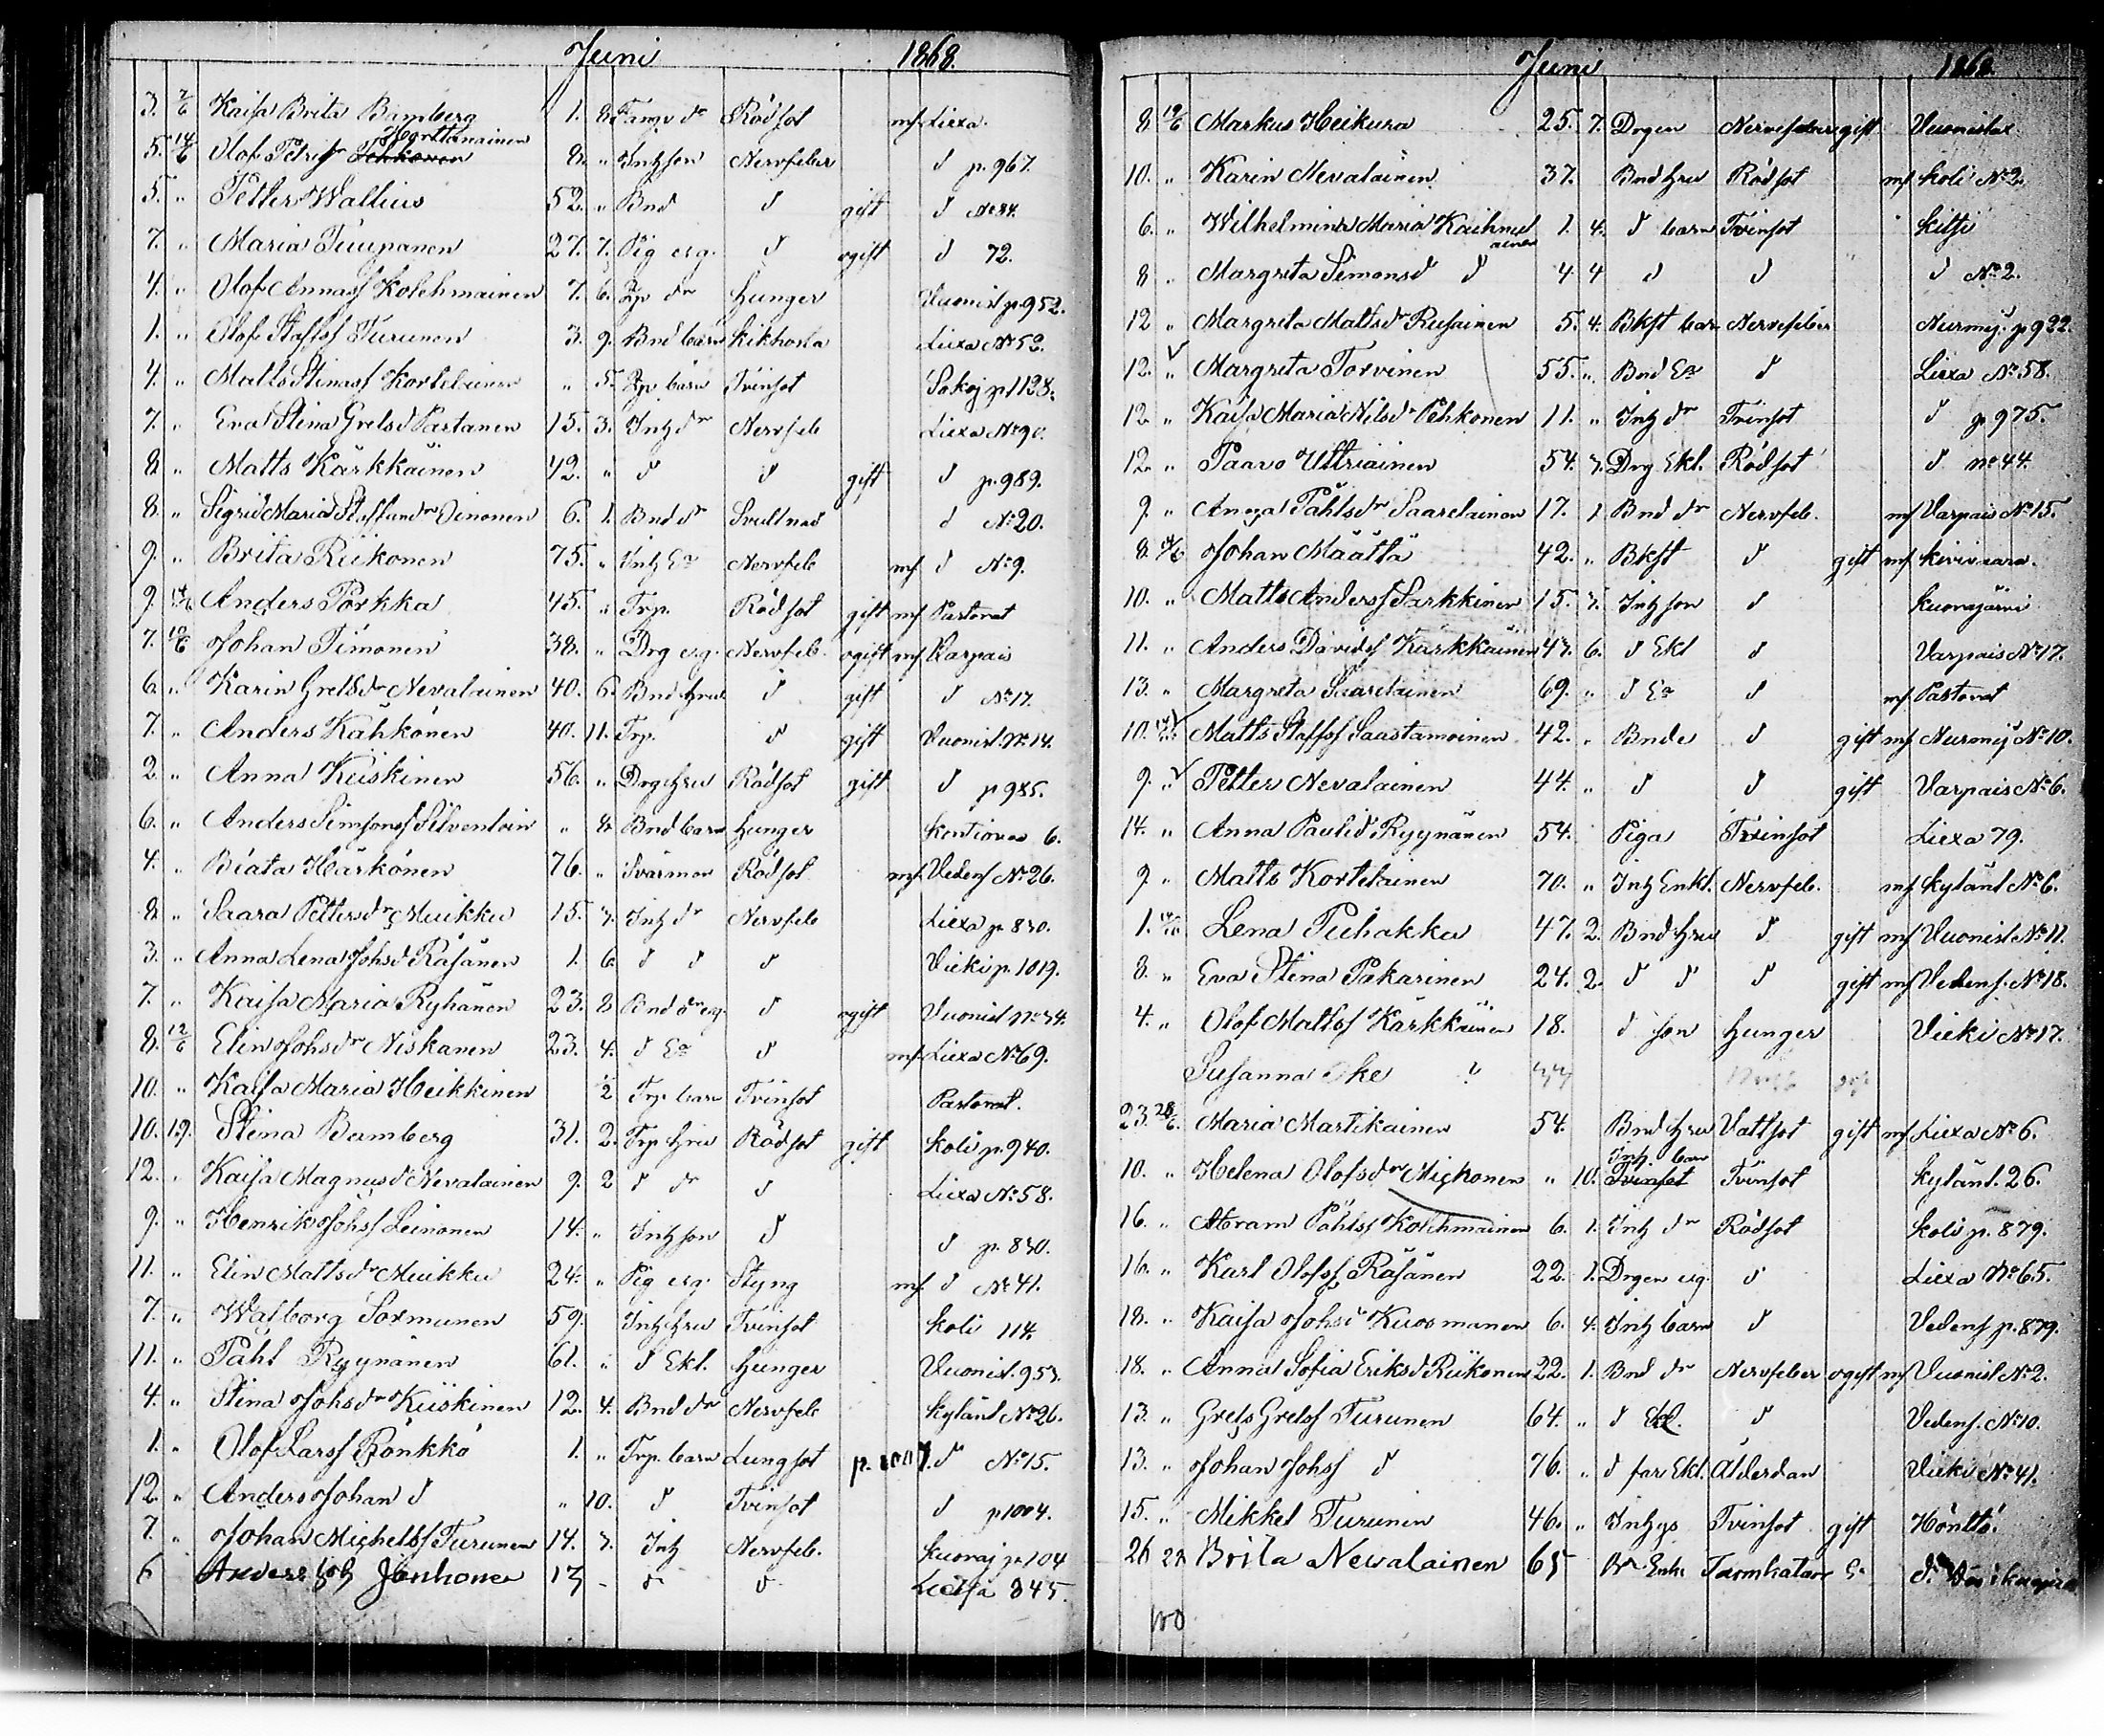 Juni 1868.
3. 7/6 Kaisa Brita Bamberg 1. 8. Fångv dr Rödsot mf Liexa.
Hortlanainen
5. 14/6 Olof Petrisr Tehkonen 8. " Inhson Nervfeber d p. 967.
5. " Petter Wallius 52. " Bnd d gift d No 34.
7. " Maria Tuupanen 27. 7. Pig erg. d ogift d 72.
4. " Olof Annass Kolehmainen 7. 6. dr Hunger Vuonisl p. 952.
1. " Olof Staffss Turunen 3. 9. Bnd barn Kikhosta Liexa No 52.
4. " Matts Stinass Kortelainen " 5. barn Tvinsot Sokoj p. 1128.
7. " Eva Stina Gretsd Partanen 15. 3. Inh dr Nervfeb Liexa No 90.
8. " Matts Kärkkäinen 42. " d d gift d p. 989.
8. " Sigrid Maria Staffansdr Oinonen 6. 1. Bnd dr Svullnad d No 20.
9. " Brita Riikonen 75. " Inh Ea Nervfeb mf d No 9.
9. Anders Porkka 45. " Trp. Rödsot gift mf Pastorat
7. 10/6 Johan Timonen 38. " Drg erg. Nervfeb. ogift mf Varpais
6. " Karin Gretsdr Nevalainen 40. 6. Bnd hru d gift d No 17.
7. " Anders Kähkönen 40. 11. Trp. d gift Vuonisl. No 14.
2. " Anna Kiiskinen 56. " Drg hru Rödsot gift d p 985.
6. " Anders Simonss Silventoin " 8. Bnd barn Hunger Kontiovaa 6.
4. " Biata Härkönen 76. " Svärmor Rödsot mf. Vedens No 26.
8. " Saara Pettersdr Muikku 15. 7. Inh dr Nervfeb Liexa p. 830.
3. " Anna Lena Johsd Räsänen 1. 6. d d d Vieki p. 1019.
7. " Kaisa Maria Ryhänen 23. 8 Bnd dr erg. d ogift Vuonisl No 34.
8. 12/6 Elin Johsdr Niskanen 23. 4. d Ea d mf Liexa No 69.
10. " Kaisa Maria Heikkinen 1/2 Trp barn Tvinsot Pastorat.
10. 19. Stina Bamberg 31. 2. Trp hru Rödsot gift Koli p. 940.
12. " Kaisa Magnusd Nevalainen 9. 2 d dr d Liexa No 58.
9. " Henrik Johss Leinonen 14. " Inh son d d p. 830.
11. " Elin Mattsdr Muikku 24. " Pig erg. Styng mf. d No 41.
7. " Walborg Sormunen 59. Inh hru Tvinsot Koli 114.
11. " Påhl Ryynänen 61. " d Ekl. Hunger Vuonisl. 953.
4. " Stina Johsdr Kiiskinen 12. 4. Bnd dr Nervfeb Kylänl No 26.
1. " Olof Larss Rönkkö 1. " Trp. barn Lungsot p. 1007. d No 15.
12. " Anders Johan d " 10. d Tvinsot d p 1004.
7. " Johan Michelss Turunen 14. 7. Inh Nervfeb. Kuoraj p. 104
6 Anders Joh Jonhonen 17 - d d Lieksa 845.
Juni 1868.
8. 12/6 Markus Heikura 25. 7. Drgen Nervfeber gift Vuonislax
10. " Karin Nevalainen 37. Bnd hru Rödsot mf Koli No 2.
6. " Wilhelmina Maria Kaihnul 1. 4. d barn Tvinsot Kitsi
ainen
8 " Margreta Simonsd d 4. 4 d d d No 2.
12 " Margreta Mattsdr Rusainen 5. 4. Bkst bar Nervfeber Nurmij. p 922.
12. " Margreta Torvinen 55. " Bnd Ea d Liexa No 58.
12 " Kaisa Maria Nilsdr Pehkonen 11. " Inh dr Tvinsot d p 975.
12. " Paavo Ultriainen 54. 7. Drg Ekl. Rödsot d No 44.
9. " Anna Påhlsdr Saarelainen 17. 1 Bnd dr Nervfeb. mf Varpais No 15.
8. 14/6 Johan Määttä 42. " Bkst d gift mf Kivivaara.
10. " Matts Anderss Sarkkinen 15. 7. Inh son d Kuorajärvi
11. " Anders Davidss Kärkkäinen 47. 6. d Ekl d Varpais No 17.
13. " Margreta Saarelainen 69. " d Ea d mf. Pastorat
10. Matts Staffss Saastamoinen 42. " Bnde d gift mf Nurmij No 10.
9. " Petter Nevalainen 44. " d d gift Varpais No 6.
14. " Anna Paulsd Ryynänen 54. Piga Tvinsot Liexa 79.
9. " Matts Kortelainen 70. " Inh Enkl. Nervfeb. mf Kylänl No 6.
1. Lena Puhakka 47. 2. Bnd hru d gift mf Vuonisl No 11.
8. " Eva Stina Pakarinen 24. 2. d d d gift mf Vedens. No 18.
4. " Olof Mattss Kärkkäinen 18. d son Hunger Vieki No 17.
Susanna "
23. 28/6 Maria Martikainen 54. Bnd hru Vattsot gift mf Liexa No 6.
Inh. barn
10. " Helena Olofsdr Mickonen " 10. Tvinsot Tvinsot Kylänl. 26.
16. " Abram Påhlss Kolehmainen 6. 1. Inh dr Rödsot Koli p. 879.
16. " Karl Olofss Räsänen 22. 1. Drgen erg. d Liexa No 65.
18. " Kaisa Johsd Kuosmanen 6. 4. Inh barn d Vedens p. 879.
18. " Anna Sofia Eriksd Riikonen 22. 1. Bnd dr Nervfeber ogift mf Vuonisl No 2.
13. " Grels Grelss Turunen 64. " d Ekl. d Vedens. No 10.
13. " Johan Johss d 76. " d far Ekl. Ålderdom Vieki No 41.
15. " Mikkel Turunen 46. " Inhgs Tvinsot gift Höntto.
26 28 Brita Nevalainen 65 Enk. Tarmkatarr
100